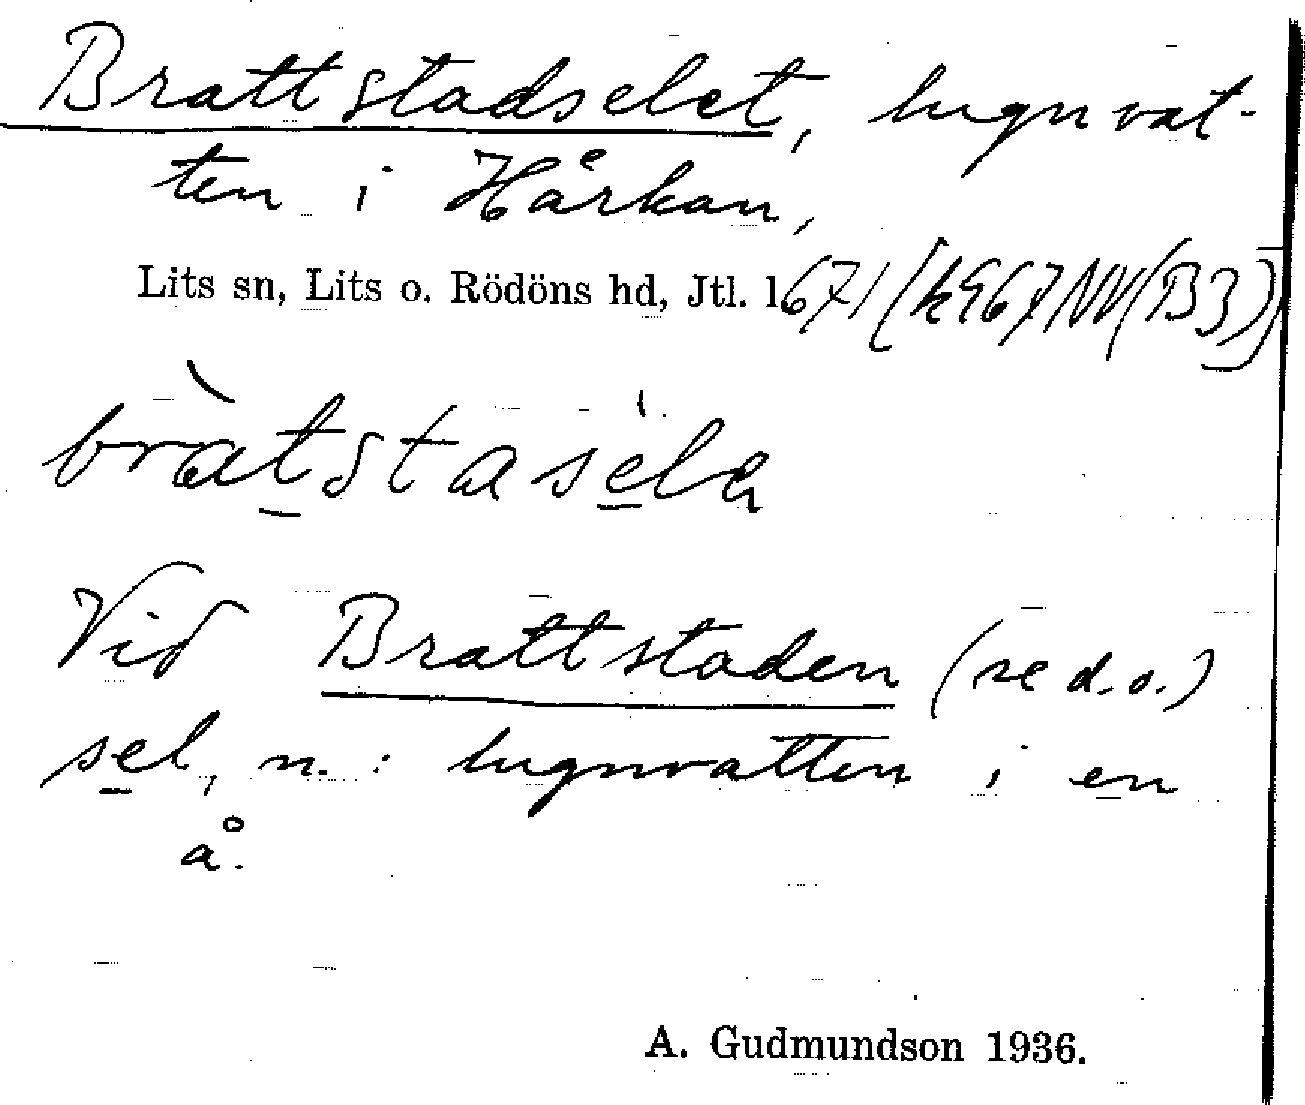 Brattstadselet, lugnvat-
ten i Hårkan,
Lits sn, Lits o. Rödöns hd, Jtl. l671 (k967NV(B3))
bràtstasela
Vid Brattstaden (se d.o.)
sel, n. : lugnvatten i en
å.
A. Gudmundson 1936.